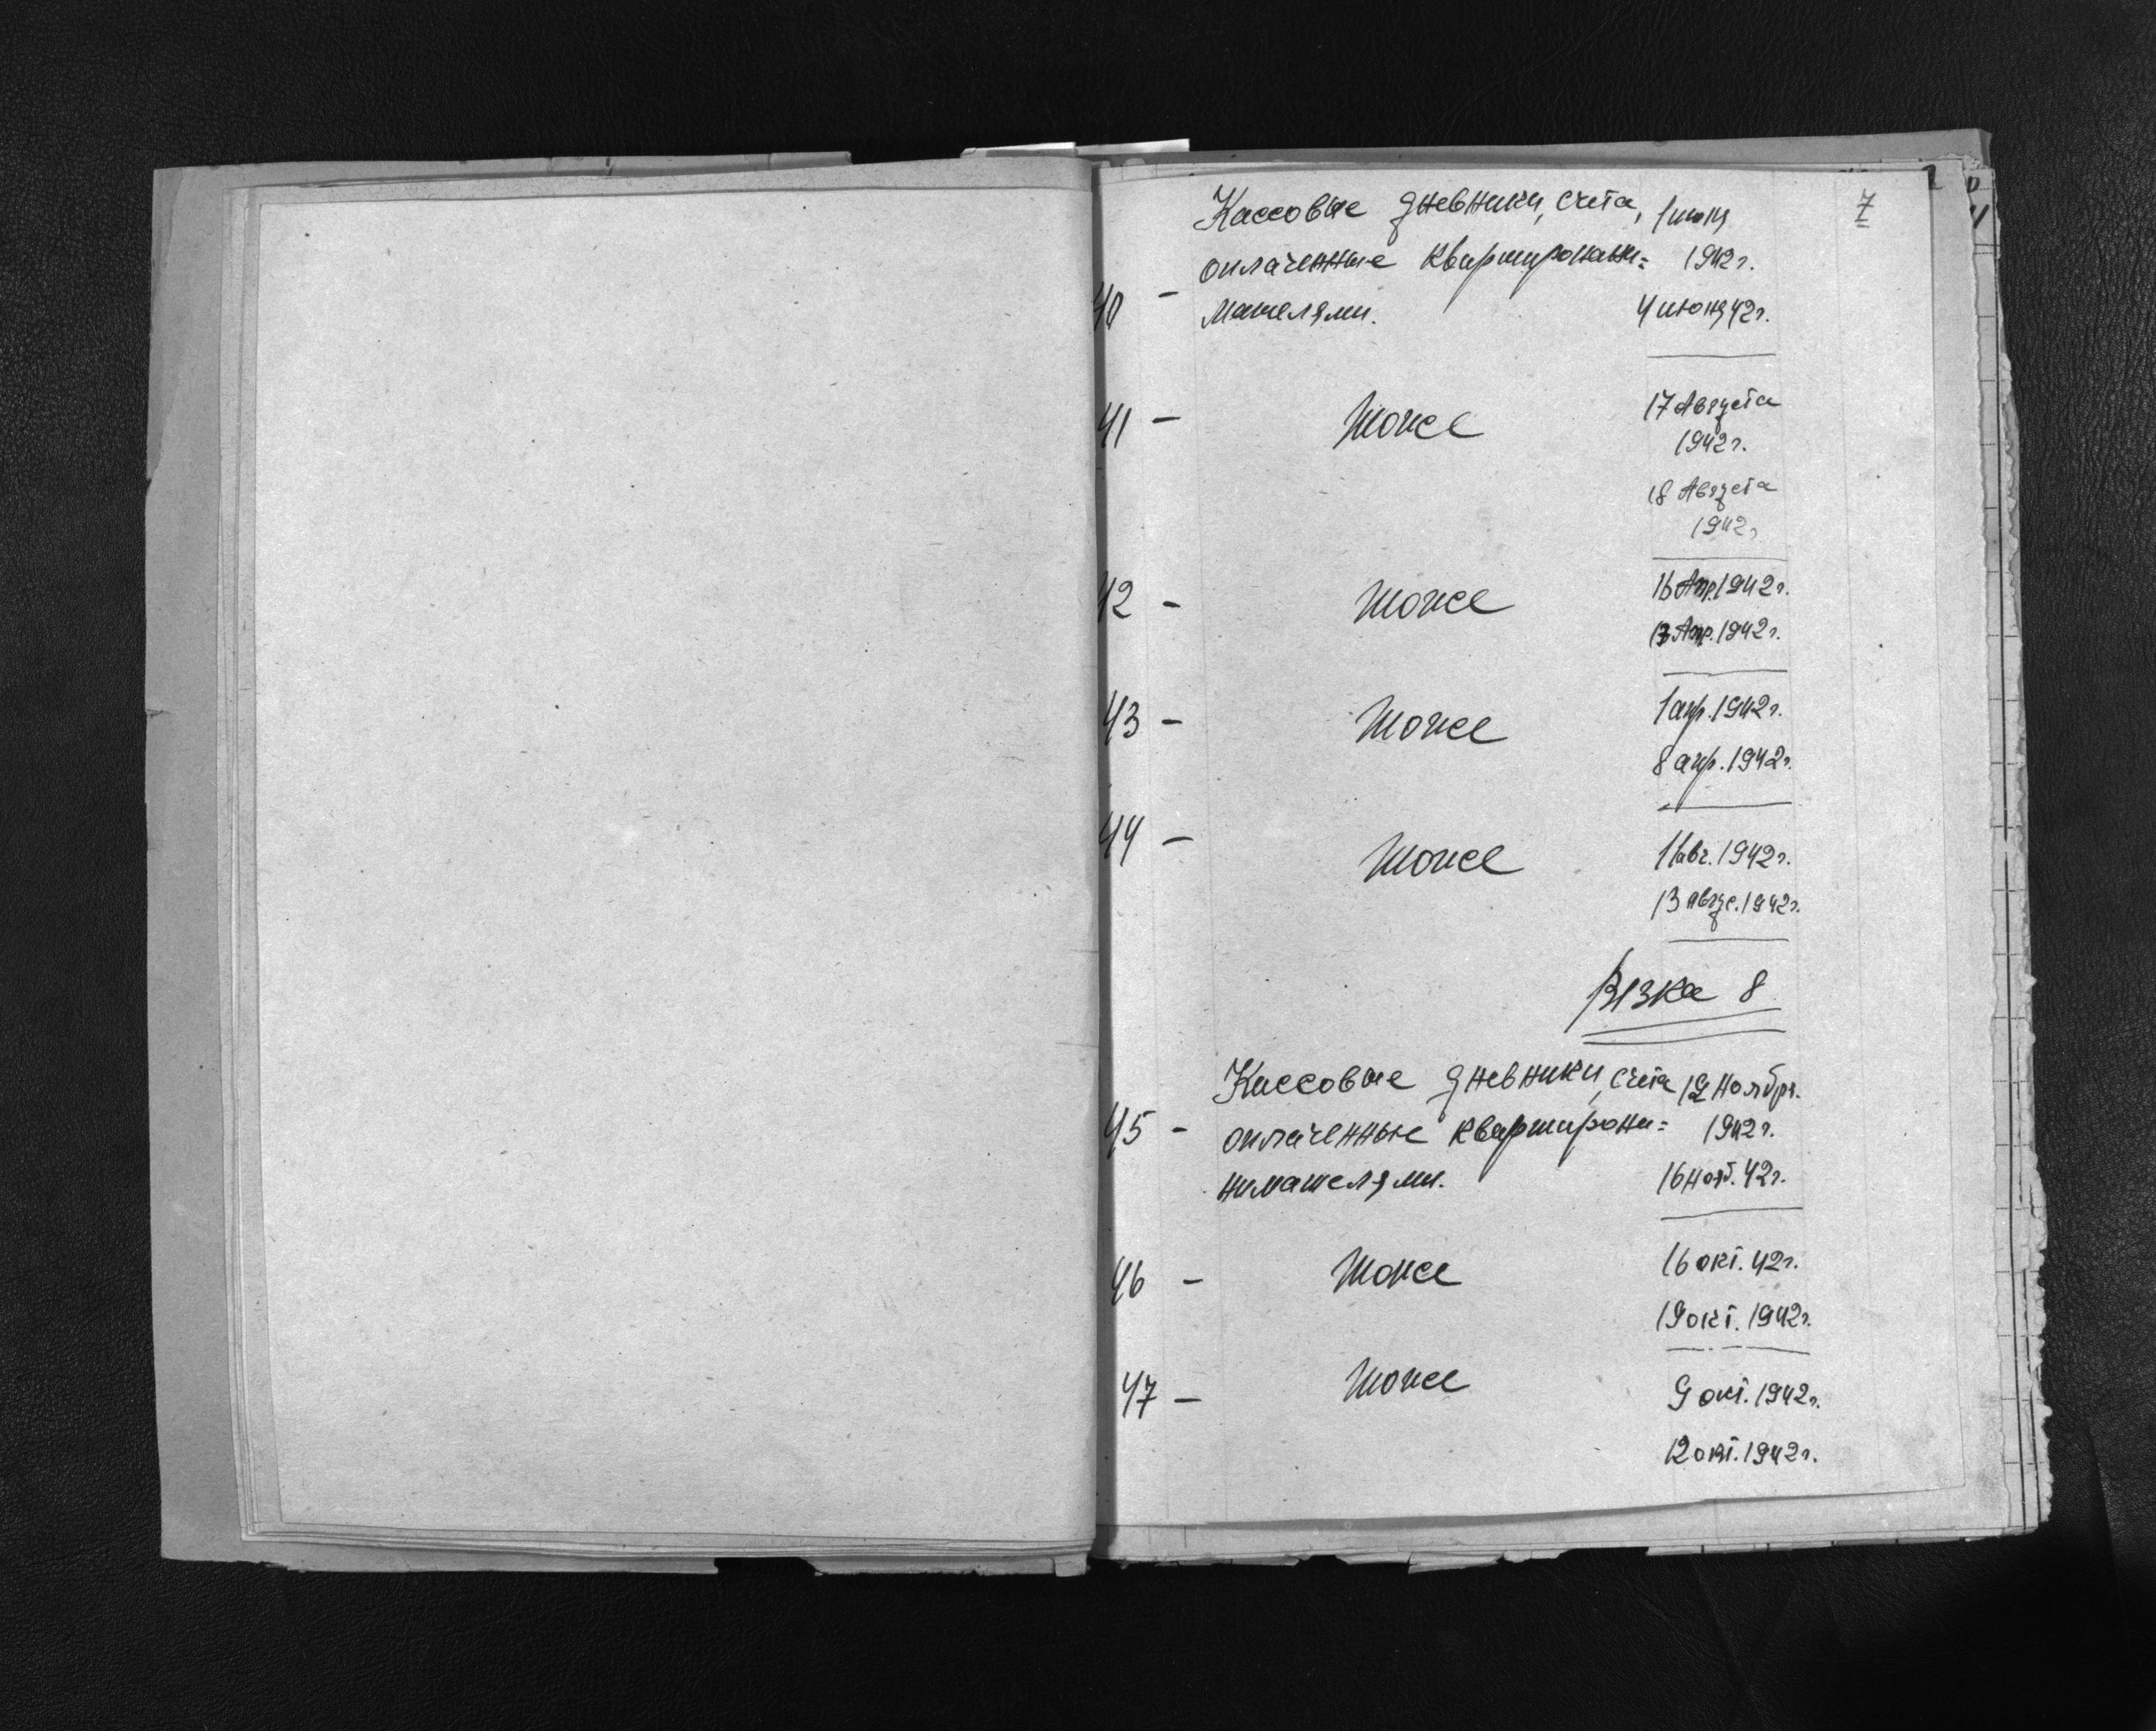 7
Кассовые дневники, счета, 1 июня
оплаченные квартиронани= 1942 г.
40 - мателями. 4 июня 42 г.
41 - Тоже 17 Августа
1942 г.
18 Августа
1942 г.
42 - Тоже 16 Апр. 1942 г.
Апр. 1942 г.
43 - Тоже 1 апр. 1942 г.
8 апр. 1942 г.
44 - Тоже 11 авг. 1942 г.
13 авгус. 1942 г.
Вязка 8
Кассовые дневники, счета 12 Ноября.
45 - оплаченные квартирона= 1942 г.
нимателями. 16 нояб. 42 г.
46 - Тоже 16 окт. 42 г.
19 окт. 1942 г.
47 - Тоже 9 окт. 1942 г.
12 окт. 1942 г.